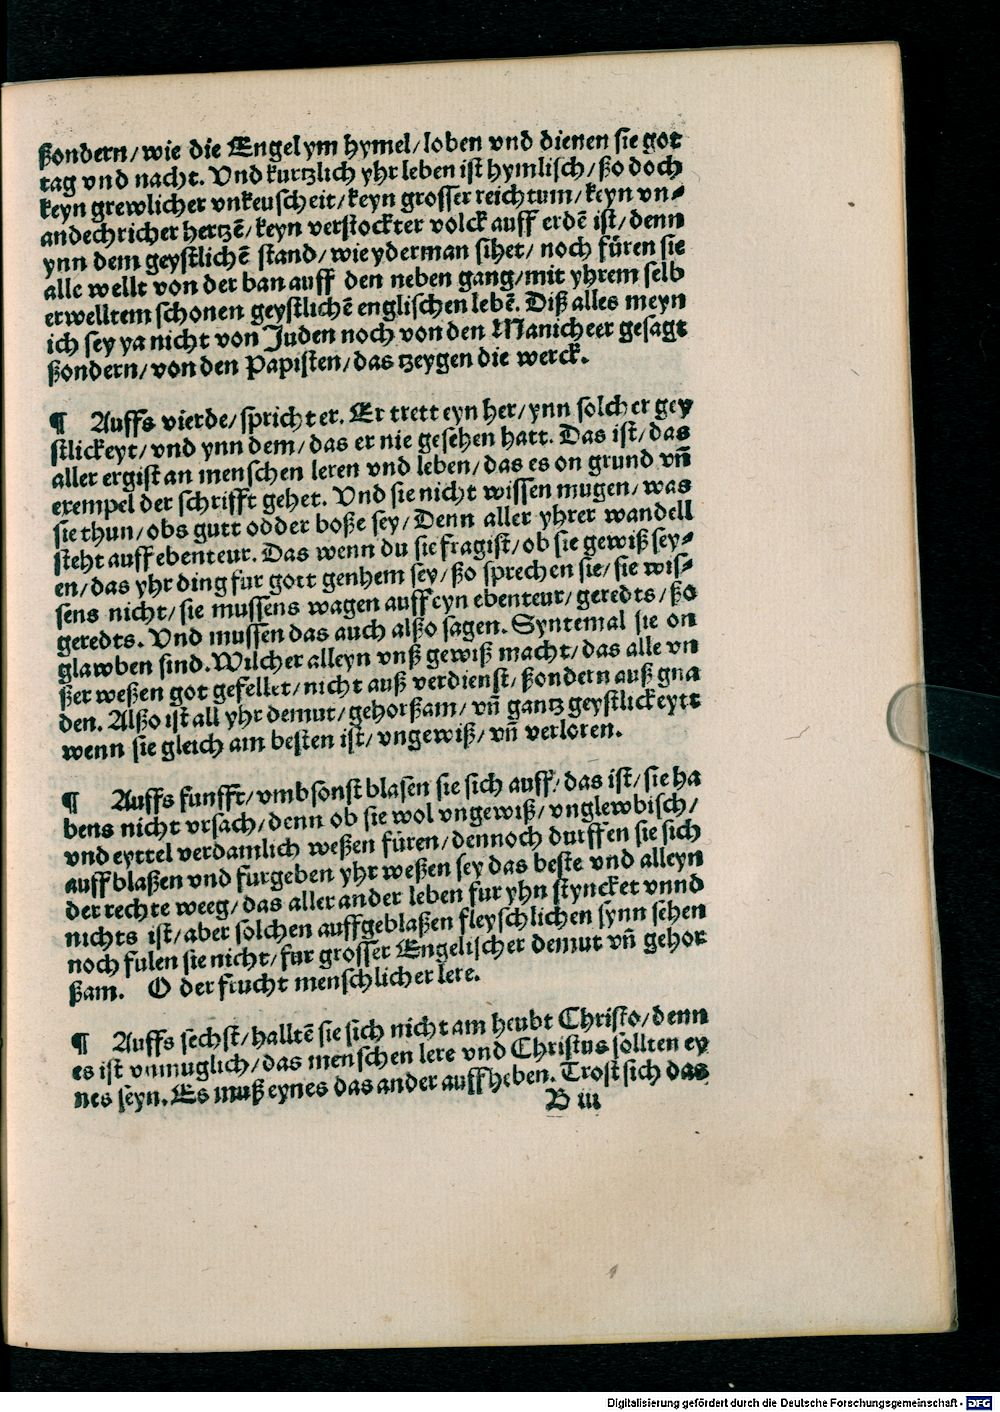 ßondern/ wie die Engel ym hymel/ loben vnd dienen sie got
tag vnd nacht. Vnd kurtzlich yhr leben ist hymlisch/ ßo doch
keyn grewlicher vnkeuscheit/ keyn grosser reichtum/ keyn vn⸗
andechricher hertzē/ keyn verstockter volck auff erdē ist/ denn
ynn dem geystlichē stand/ wie yderman sihet/ noch füren sie
alle wellt von der ban auff den neben gang/ mit yhrem selb
erwelltem schonen geystlichē englischen lebē. Diß alles meyn
ich sey ya nicht von Juden noch von den Manicheer gesagt
ßondern/ von den Papisten/ das tzeygen die werck.
¶ Auffs vierde/ spricht er. Er trett eyn her/ ynn solcher gey
stlickeyt/ vnd ynn dem/ das er nie gesehen hatt. Das ist/ das
aller ergist an menschen leren vnd leben/ das es on grund vñ
exempel der schrifft gehet. Vnd sie nicht wissen mugen/ was
sie thun/ obs gutt odder boße sey/ Denn aller yhrer wandell
steht auff ebenteur. Das wenn du sie fragist/ ob sie gewiß sey⸗
en/ das yhr ding fur gott genhem sey/ ßo sprechen sie/ sie wis⸗
sens nicht/ sie mussens wagen auff eyn ebenteur/ geredts/ ßo
geredts. Vnd mussen das auch alßo sagen. Syntemal sie on
glawben sind. Wilcher alleyn vnß gewiß macht/ das alle vn
ßer weßen got gefellet/ nicht auß verdienst/ ßondern auß gna
den. Alßo ist all yhr demut/ gehorßam/ vñ gantz geystlickeytt
wenn sie gleich am besten ist/ vngewiß/ vñ verloren.
¶ Auffs funfft/ vmbsonst blasen sie sich auff/ das ist/ sie ha
bens nicht vrsach/ denn ob sie wol vngewiß/ vnglewbisch/
vnd eyttel verdamlich weßen füren/ dennoch durffen sie sich
auffblaßen vnd furgeben yhr weßen sey das beste vnd alleyn
der rechte weeg/ das aller ander leben fur yhn styncket vnnd
nichts ist/ aber solchen auffgeblaßen fleyschlichen synn sehen
noch fulen sie nicht/ fur grosser Engelischer demut vñ gehor
ßam. O der frucht menschlicher lere.
¶ Auffs sechst/ halltē sie sich nicht am heubt Christo/ denn
es ist vnmuglich/ das menschen lere vnd Christus sollten ey
nes seyn. Es muß eynes das ander auffheben. Trost sich das
B iii
Digitalisierung gefördert durch die Deutsche Forschungsgemeinschaft - DFG